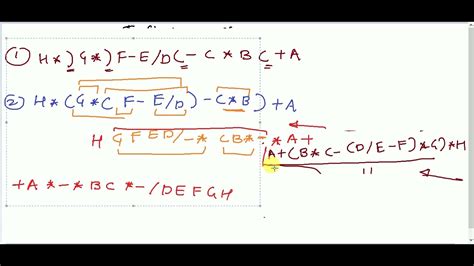 ① H*)G*)F-E/D(-C*B(+A
② H*(G*(F-E/D)-C*B)+A
H GFED/-* CB*-*A+
(A+(B*C-(D/E-F)*G)*H
+A*-*BC*-/DEFGH